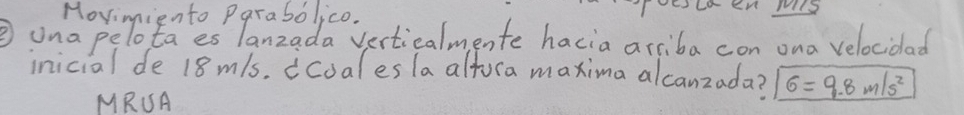 Movimiento parabólico. respuesta en m/s
② Una pelota es lanzada verticalmente hacia arriba con una velocidad
inicial de 18 m/s. ¿Cual es la altura maxima alcanzada? G = 9.8 m/s²
MRUA